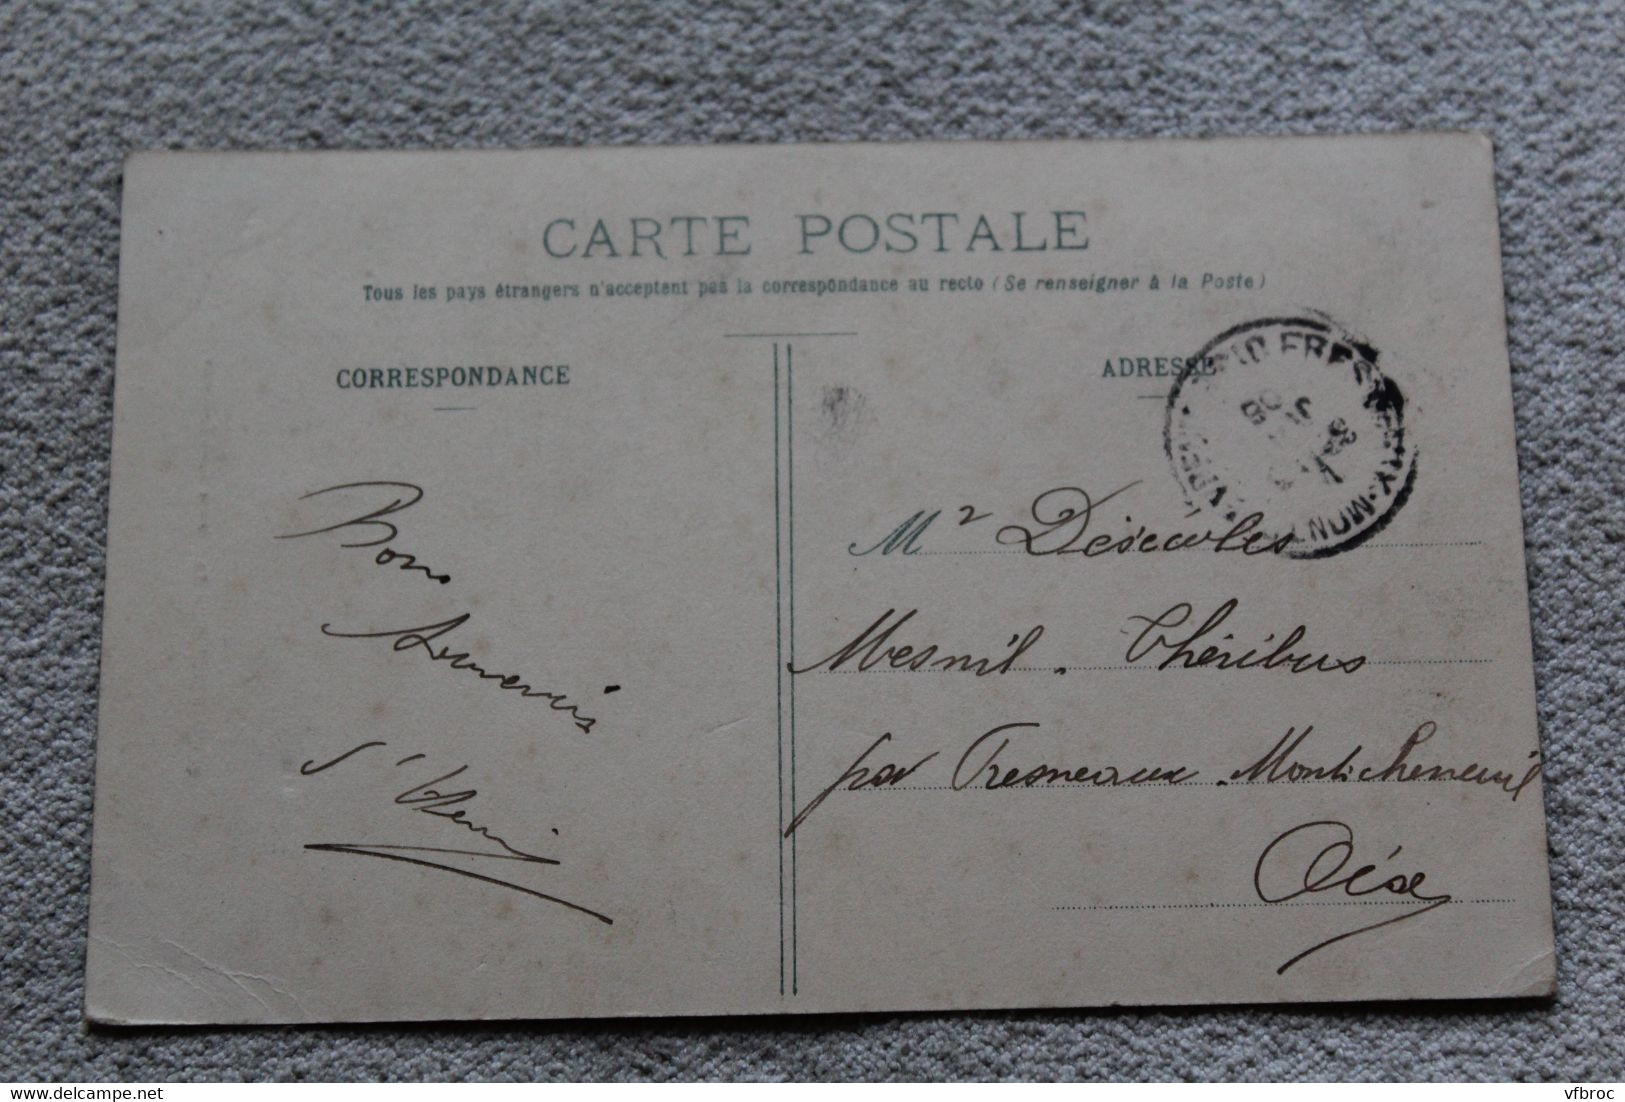 CARTE POSTALE
Tous les pays étrangers n'acceptent pas la correspondance au recto (Se renseigner à la Poste)
CORRESPONDANCE
ADRESSE
Bons
Souvenirs
Henri
Mr Désécoles
Mesnil-Théribus
par Fresneaux-Montchevreuil
Oise
www.delcampe.net
vfbroc